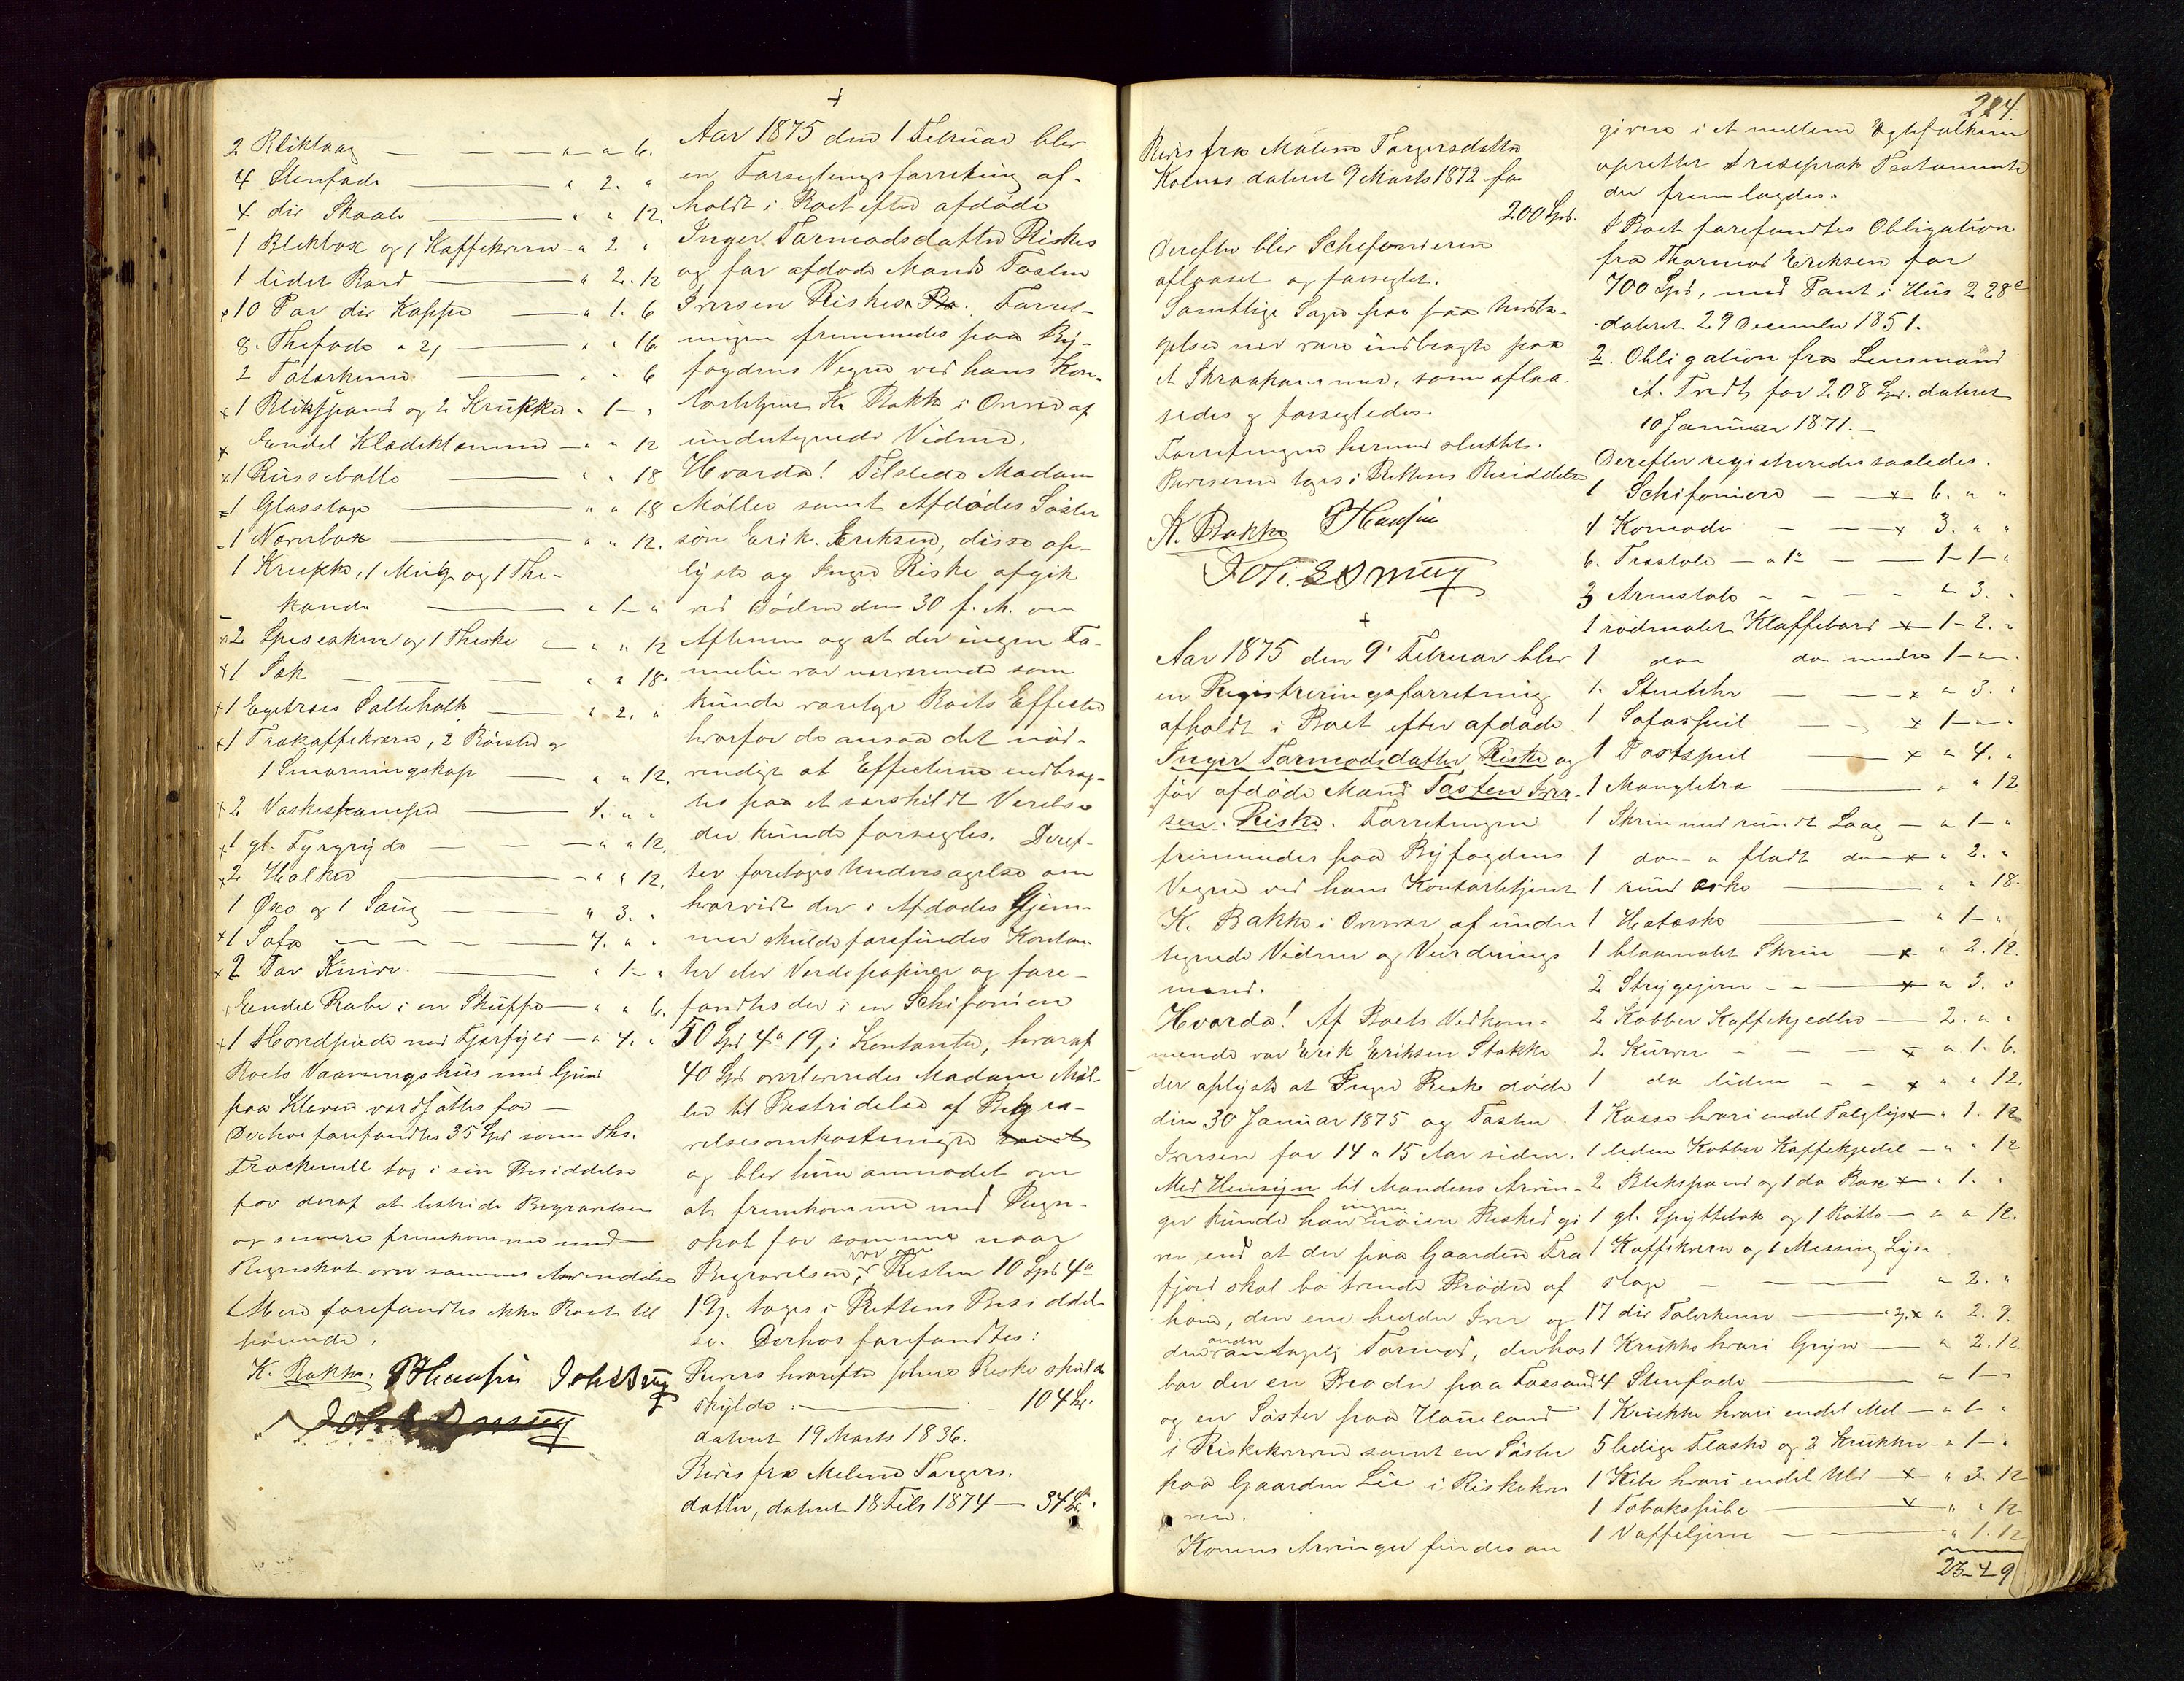 2 Bliklaag — — — " " 6.
4 Stenfade — " 2. "
4 dir Skaale — " " 12.
1 Blikboxe og 1 Kaffekvern - " 2 "
1 lidet Bord — " 2. 12
10 Par dir Koppe — " 1. 6
8. Thefade a 2 — " " 16
2 Talerkener — " " 6
1 Blikspand og 2 Krukker " 1 — "
Eendel Klædeklemmer — " " 12
1 Russebolle — " " 18
1 Glasslage — " " 18
1 — " " 12.
1 Krukke, 1 Mugge og 1 The-
kande — " 1 — "
2 Spiseskeer og 1 Theske — " " 12
1 Sæk — — — " " 18.
1 Egetræes — " 2. "
1 Trækaffekværn, 2 og
1 — " " 12.
2 Vaskestamper — 1. " "
1 gl. Fyrgryde — — — " " 12.
2 — " " 12.
1 Øxe og 1 Saug — " 3. "
1 Sofa — — — 7. " "
2 Par Knive. — " 1 — "
Eendel Rabe i en Skuffe — " " 6.
1 Hovedpude med Fjærfyld — " 4. "
Boets Vaaningshus med Grund
paa Kleven værdsattes for —
Derhos forefandtes 35 Spd som Ths.
tog i sin Besiddelse
for deraf at bestride Begravelsen
og senere fremkomme med
Regnskab over sammes Anvendelse
Mere forefandtes ikke Boet til
hørende.
K. Bakke. P Hansen
+
Aar 1875 den 1 Februar blev
en Forseglingsforretning af-
holdt i Boet efter afdøde
Inger Tormodsdatter Riskes
og før afdøde Mand Tosten
Iversen Riskes. Forret-
ningen fremmedes paa By-
fogdens Vegne ved hans Kon-
torbetjent K. Bakke i Overvær af
undertegnede Vidner.
Hvorda! Tilstede Madam
Møller samt Afdødes Søster
søn Erik Eriksen, disse op-
lyste og Inger Riske afgik
ved Døden den 30 f. M. om
Aftenen og at der ingen Fa-
milie var nærværende som
kunde varetage Boets Effecter
hvorfor de ansaa det nød-
vendigt at Effecterne indbrag-
tes paa et særskildt Værelse
der kunde forsegles. Deref-
ter foretoges Undersøgelse om
hvorvidt der i Afdødes Gjem-
mer skulde forefindes Kontan-
ter eller Værdipapirer og fore-
fandtes der i en Schifonier
50 Spd 4 " 19, i Kontanter, hvoraf
40 Spd overleveredes Madam Møl-
ler til Bestridelse af Begra-
velsesomkostninger
og blev hun anmodet om
at fremkomme med Regn-
skab for samme naar
Begravelsen var over, Resten 10 Spd 4 "
19. toges i Rettens Besiddel-
se. Derhos forefandtes:
Bevis hvorefter Riske skulde
skylde: — 104 Spd.
dateret 19 Marts 1836.
Bevis fra Melene Torgers.
datter, dateret 18 Feb 1874 — 34
224.
Bevis fra Malene Torgersdatter
Kolnes dateret 9 Marts 1872 for
200 Spd.
Derefter blev Schefonieren
aflaaset og forseglet.
Samtlige Sager paa faa Undta-
gelser nær være indbragte paa
et Skraakammer, som aflaa-
sedes og forsegledes.
Forretningen hermed sluttet.
Beviserne toges i Rettens Besiddelse
K. Bakke P Hansen
+
Aar 1875 den 9' Februar blev
en Registreringsforretning
afholdt i Boet efter afdøde
Inger Tormodsdatter Riske og
før afdøde Mand Tosten Iver-
sen Riske. Forretningen
fremmedes paa Byfogdens
Vegne ved hans Kontorbetjent
K. Bakke i Overvær af under
tegnede Vidner og Vurderings
mænd.
Hvorda! Af Boets Vedkom-
mende var Erik Eriksen Stokke
der oplyste at Inger Riske døde
den 30 Januar 1875 og Tosten
Iversen for 14 a 15 Aar siden.
Med Hensyn til Mandens Arvin-
ger kunde han ingen nøiere Besked gi
ve, end at der paa Gaarden Fra
fjord skal bo trende Brødre af
ham, den ene hedder Iver og
den anden antagelig Tormod, derhos
bor der en Broder paa Fossand
og en Søster paa Haueland
i Riskekverven samt en Søster
paa Gaarden Lie i Riskekver
ven.
Konens Arvinger findes an
givne i et mellem Egtefolkene
oprettet Testamente
der fremlagdes.
I Boet forefandtes Obligation
fra Thormod Eriksen for
700 Spd, med Pant i Hus 228c
dateret 29 December 1851.
2. Obligation fra Lensmand
A. Tvedt for 208 Spd. dateret
10 Januar 1871. —
Derefter registreredes saaledes.
1 Schifoniere — — x 6. " "
1 Komode — — x 3. " "
6. Træstole — a 1 " — — 1 — 1 — "
3 Armstole — — — " 3. "
1 rødmalet Klaffebord x 1 — 2. "
1 do do mindre 1 — " — "
1. Stueuhr — — x " 3. "
1 Sofaspeil — — x 1 — " "
1 Postspeil — x " 4. "
1 Mangletræ — " " 12
1 Skrin med rundt Laag — " 1 — "
1 do — " fladt do x " 2. "
1 rund æske — " " 18.
1 Hatæske — " 1 — "
1 blaamalet Skrin — x " 2. 12.
2 Strygejern - - — x " 3. "
2 Kobber Kaffekjedler — 2. " "
2 Kurver — — — x " 1. 6.
1 do liden — — x " " 12.
1 Kasse hvori endel Talglys x " 1. 12
1 liden Kobber Kaffekjedel — " " 12
2 Blikspand og 1 do Boxe x " 1. "
1 gl. Spyttebak og 1 Bøtte — " " 12.
1 Kaffekvern og 1 Messing Lyse
stage — — " 2. "
17 dir Talerkener — a 3, x " 2. 9.
1 Krukke hvori Gryn — " 2. 12.
4 Stenfade — " 1 — "
1 Krukke hvori endel Mel — " 1 "
5 ledige Flasker og 2 Krukker — " 1 — "
1 Kibe hvori endel Uld x " 3. 12
1 Tobakspibe — x " " 12
1 Vaffeljern — — " 1. 12
23 — 4 — 9